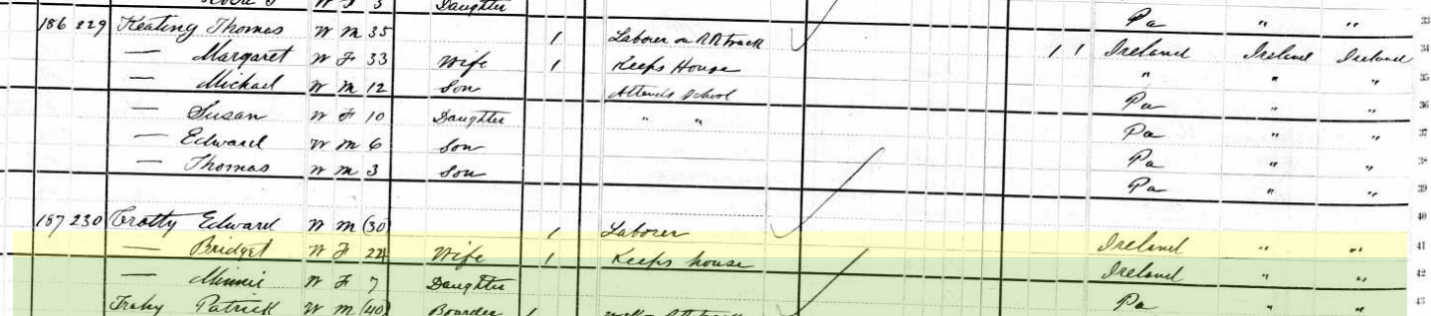 Daughter Pa " " 33
186 229 Keating Thomas W M 35 1 Laborer on RR track 1 1 Ireland Ireland Ireland 34
— Margaret W F 33 Wife 1 Keeps House " " " 35
— Michael W M 12 Son Attends School Pa " " 36
— Susan W F 10 Daughter " " Pa " " 37
— Edward W M 6 Son Pa " " 38
— Thomas W M 3 Son Pa " " 39
40
187 230 Crotty Edward W M (30) 1 Laborer Ireland " " 41
— Bridget W F 22 Wife 1 Keeps house Ireland " " 42
— Minnie W F 7 Daughter Pa " " 43
Patrick W M (40) Boarder 1